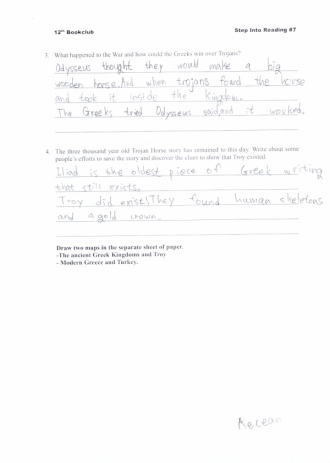 12th Bookclub
Step Into Reading #7
3. What happened to the War and how could the Greeks win over Trojans?
Odysseus thought they would make a big
wooden horse. And when trojans found the horse
and took it inside the Kingdom.
The Greeks tried Odysseus said and it worked.
4. The three thousand year old Trojan Horse story has remained to this day. Write about some
people's efforts to save the story and discover the clues to show that Troy existed.
Iliad is the oldest piece of Greek writing
that still exists.
Troy did exist! They found human skeletons
and a gold crown.
Draw two maps in the separate sheet of paper.
-The ancient Greek Kingdoms and Troy
- Modern Greece and Turkey.